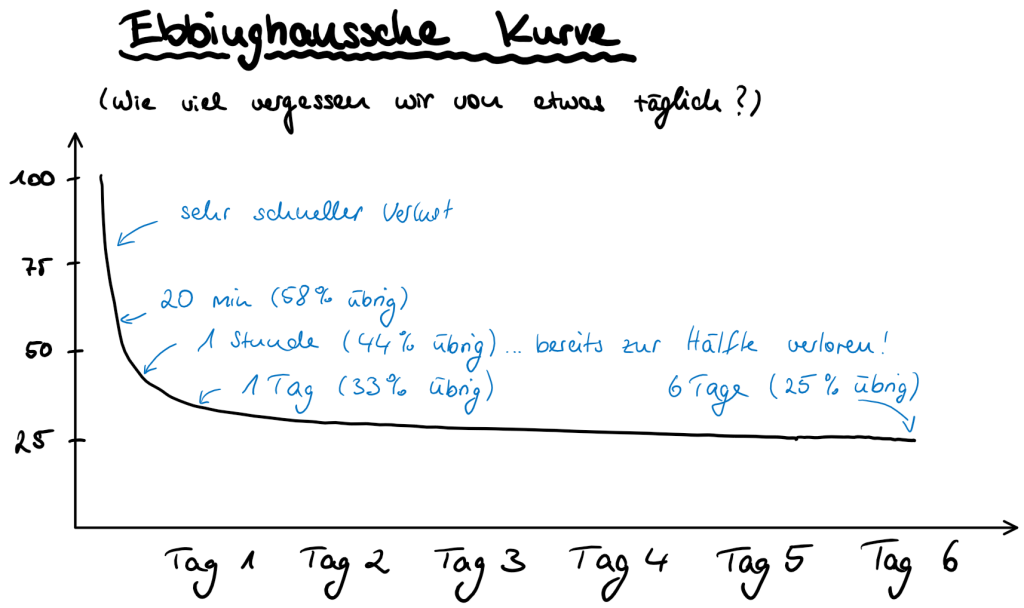 Ebbinghaussche Kurve
(Wie viel vergessen wir von etwas täglich?)
100
sehr schneller Verlust
75
20 min (58% übrig)
1 Stunde (44% übrig)... bereits zur Hälfte verloren!
50
1 Tag (33% übrig)
6 Tage (25% übrig)
25
Tag 1 Tag 2 Tag 3 Tag 4 Tag 5 Tag 6